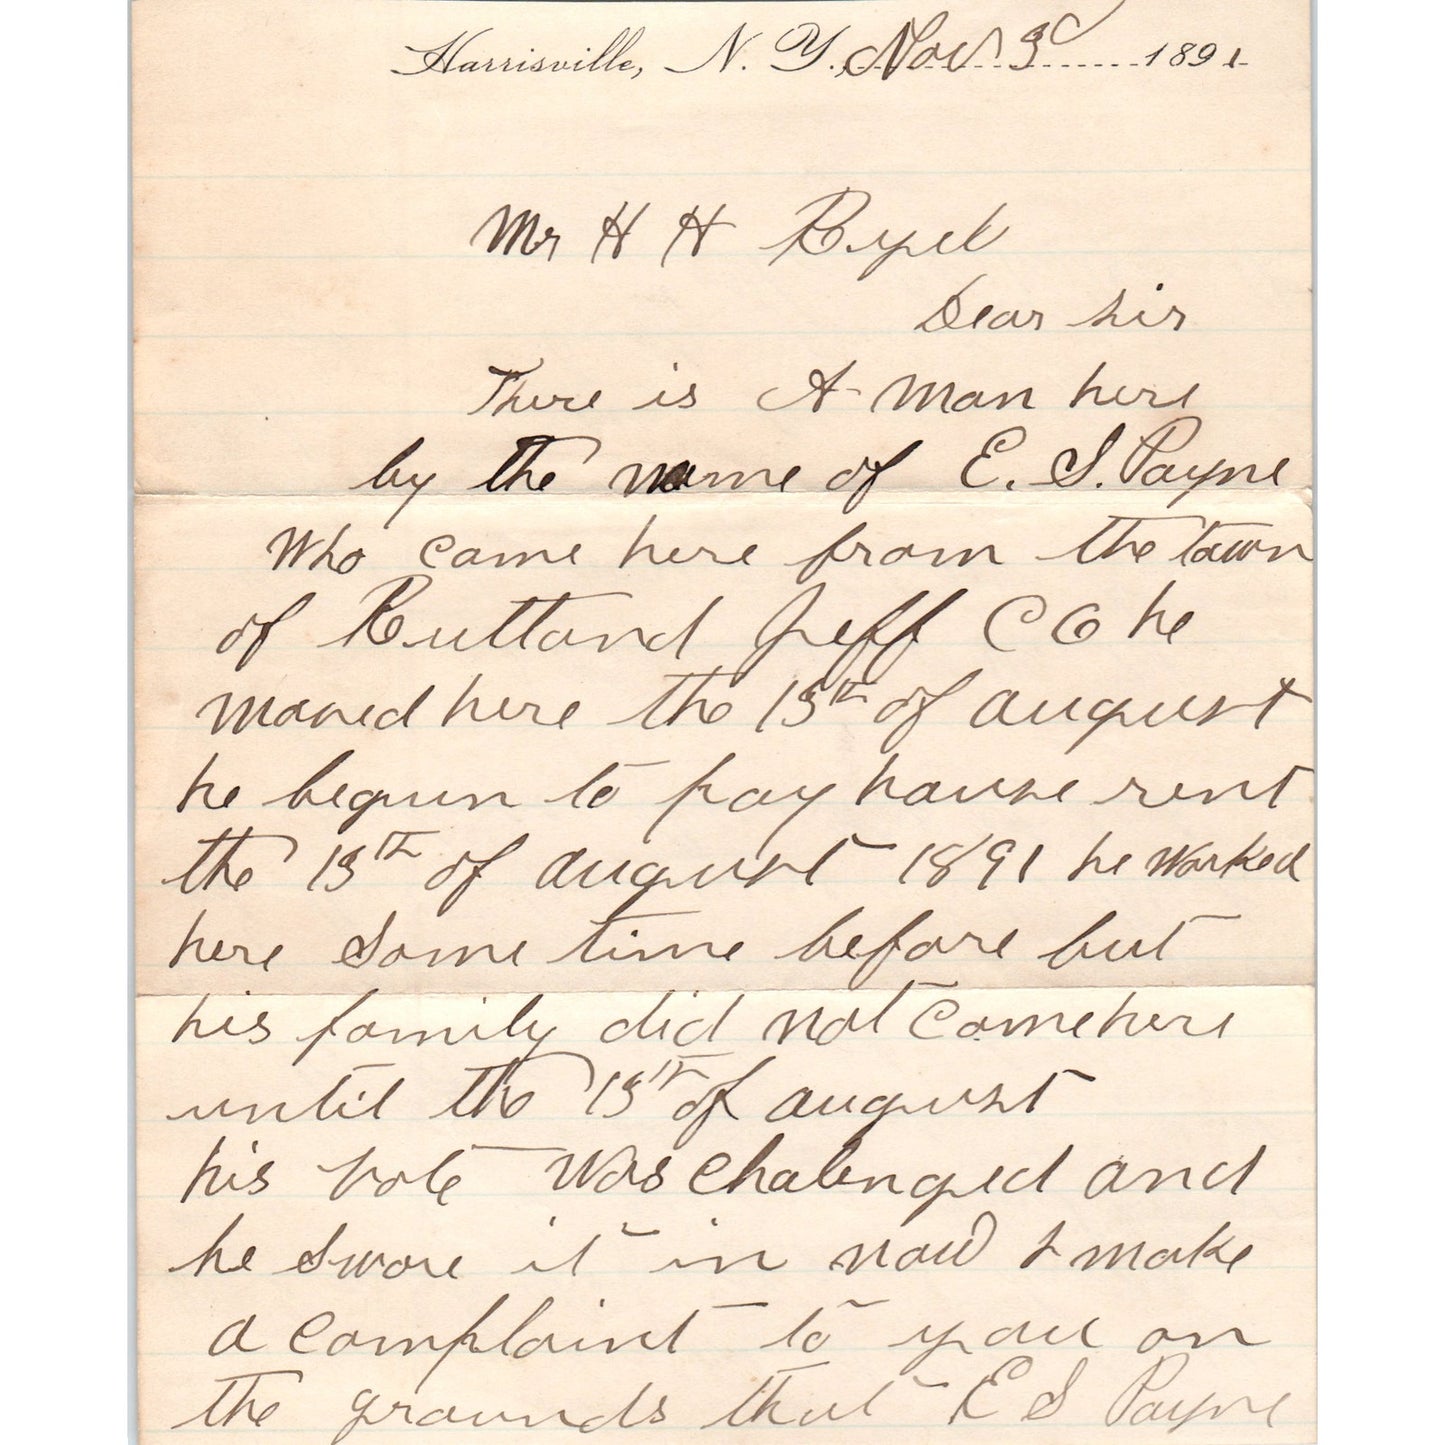 Harrisville, N. Y. Nov 3d 1891
Mr H H Ryel
Dear Sir
There is A man here
by the name of E. S. Payne
Who came here from the town
of Ruttand Jeff CO he
moved here the 13th of august
he begun to pay house rent
the 13th of august 1891 he worked
here Some time before but
his family did not come here
until the 13th of august
his vote was chalenged and
he Swore it in now I make
a complaint to you on
the grounds that E S Payne